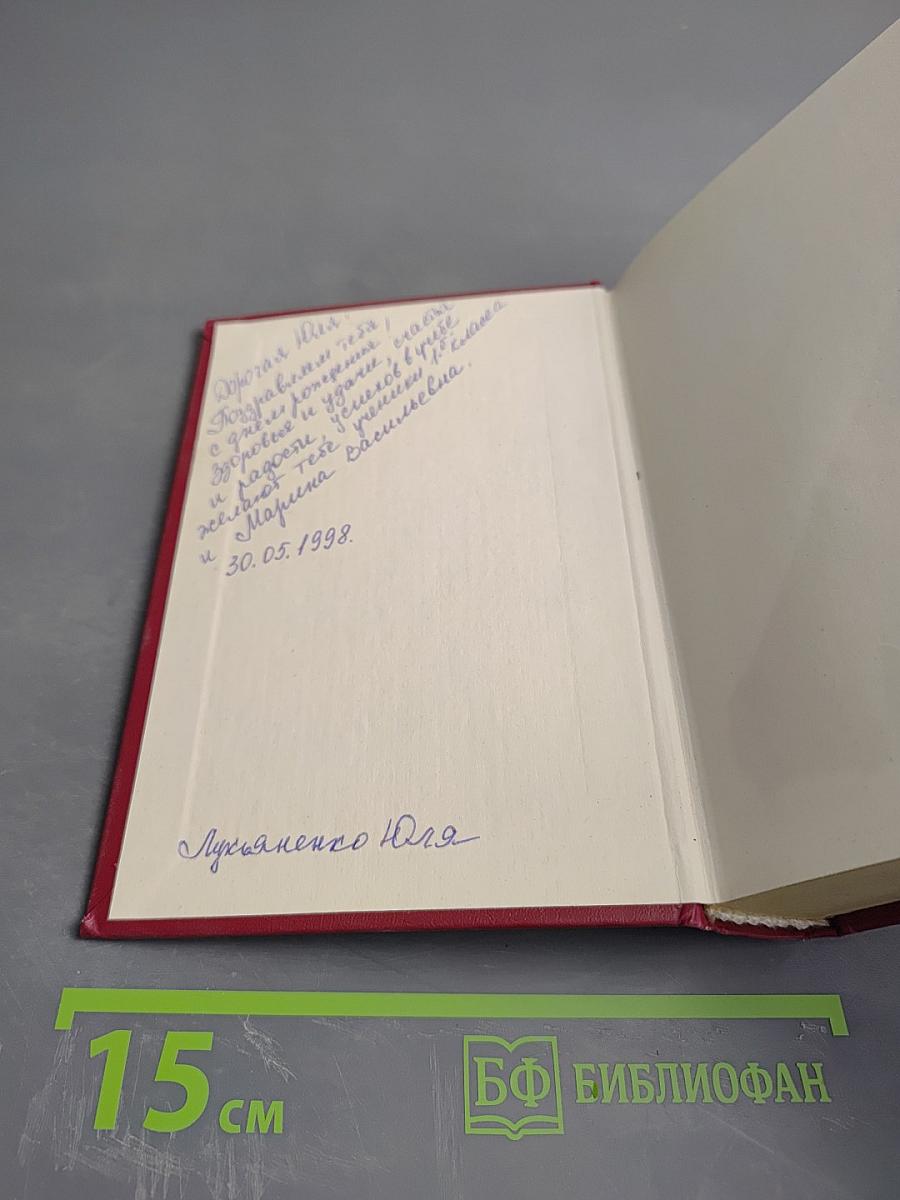 Дорогая Юля!
Поздравляем тебя,
с днём рождения!
Здоровья и удачи, счастья
и радости, успехов в учёбе
желают тебе ученики 1 "б" класса
и Марина Васильевна.
30.05.1998.
Лукьяненко Юля
15 см
БФ БИБЛИОФАН